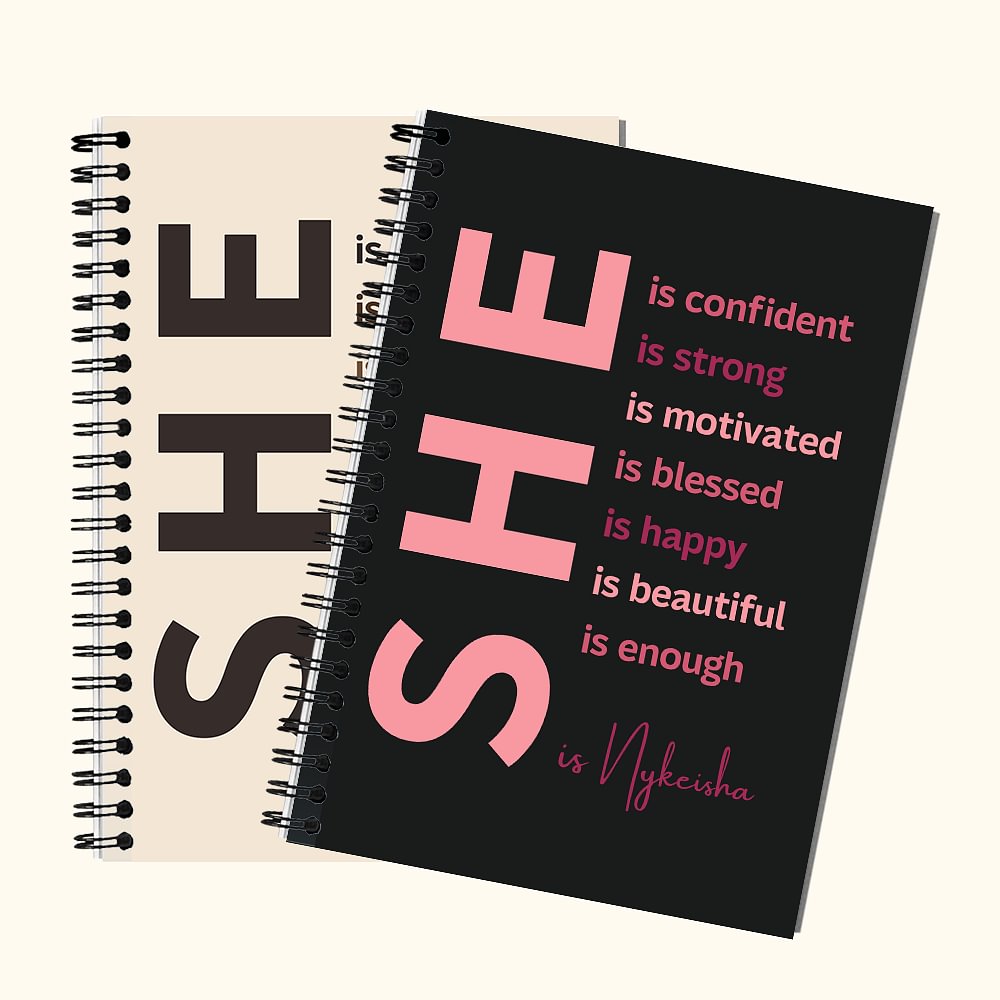 SHE
is
is
SHE
is confident
is strong
is motivated
is blessed
is happy
is beautiful
is enough
is Nykeisha